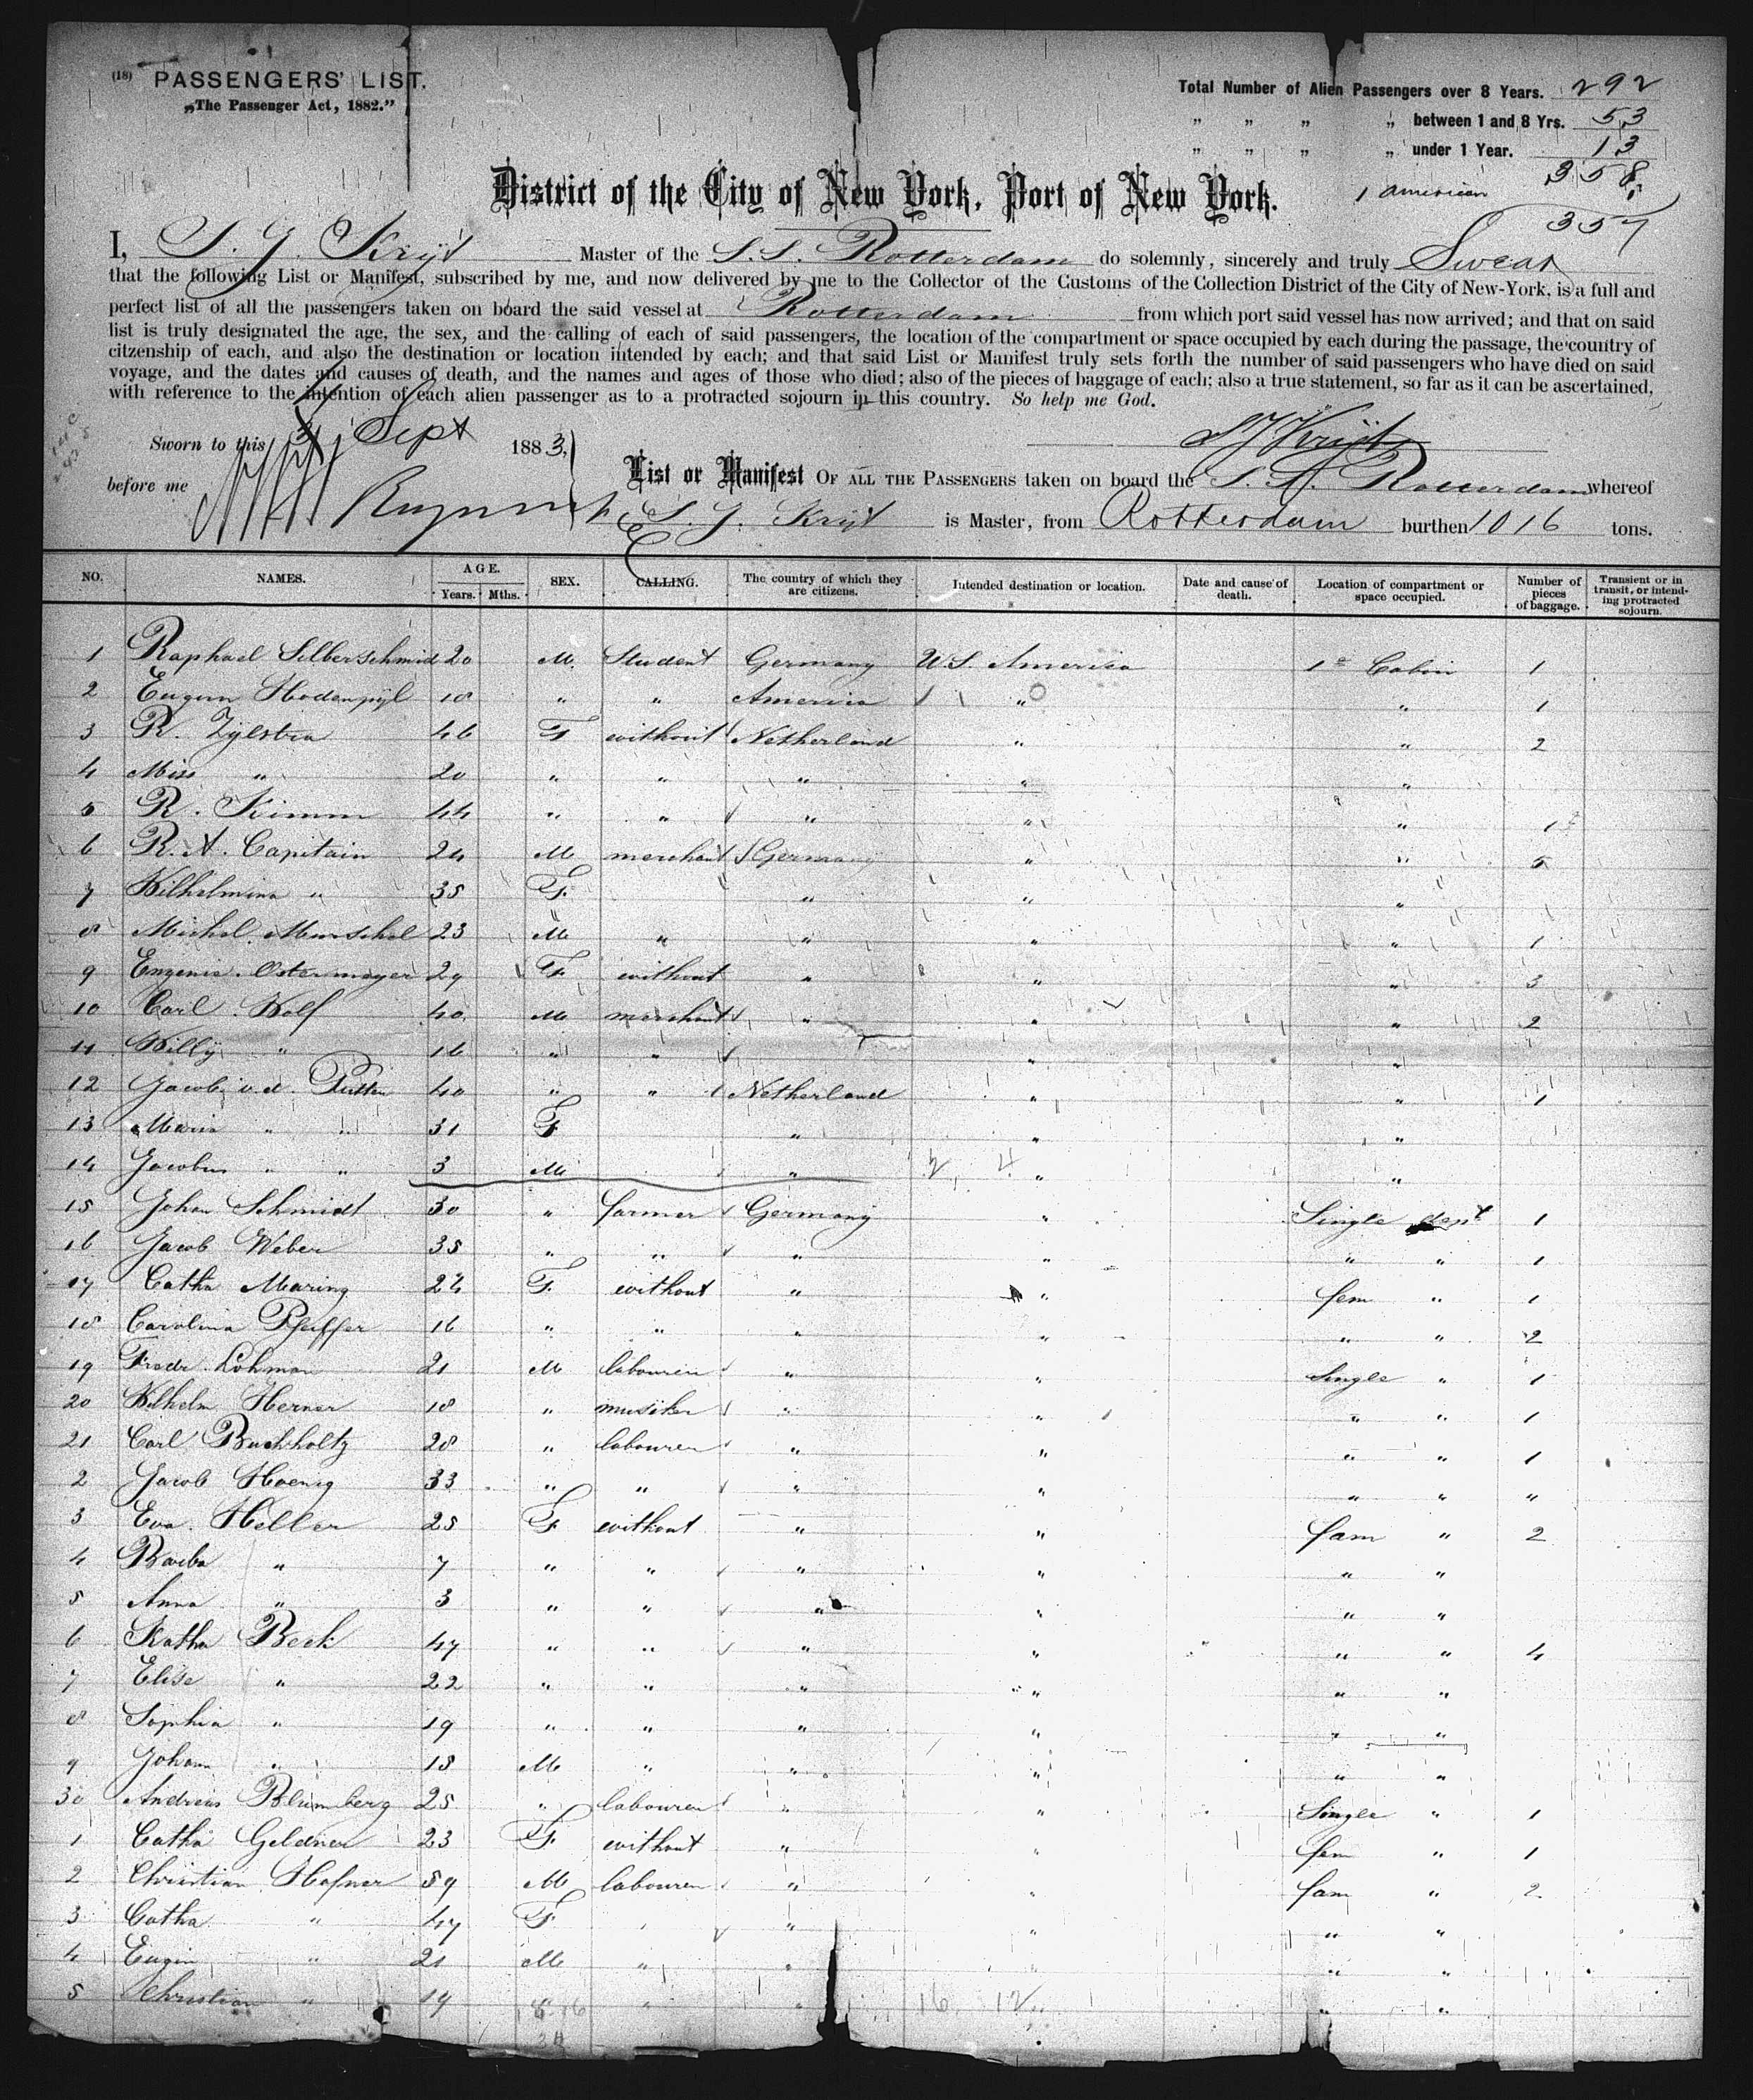 (18) PASSENGERS' LIST.
„The Passenger Act, 1882."
Total Number of Alien Passengers over 8 Years. 292
„ „ „ „ between 1 and 8 Yrs. 53
„ „ „ „ under 1 Year. 13
358
1 American
357
District of the City of New York, Port of New York.
I, S. J. Krijt Master of the S.S. Rotterdam do solemnly, sincerely and truly Swear
that the following List or Manifest, subscribed by me, and now delivered by me to the Collector of the Customs of the Collection District of the City of New-York, is a full and
perfect list of all the passengers taken on board the said vessel at Rotterdam from which port said vessel has now arrived; and that on said
list is truly designated the age, the sex, and the calling of each of said passengers, the location of the compartment or space occupied by each during the passage, the country of
citzenship of each, and also the destination or location intended by each; and that said List or Manifest truly sets forth the number of said passengers who have died on said
voyage, and the dates and causes of death, and the names and ages of those who died; also of the pieces of baggage of each; also a true statement, so far as it can be ascertained,
with reference to the intention of each alien passenger as to a protracted sojourn in this country. So help me God.
Sworn to this Sept 1883,
S J Krijt
before me
List or Manifest OF ALL THE PASSENGERS taken on board the S. S. Rotterdam whereof
S. J. Krijt is Master, from Rotterdam burthen 1016 tons.
NO. NAMES. AGE. Years. Mths. SEX. CALLING. The country of which they are citizens. Intended destination or location. Date and cause of death. Location of compartment or space occupied. Number of pieces of baggage. Transient or in transit, or intending protracted sojourn.
1 Raphael Silberschmid 20 M. Student Germany U.S. America 1e Cabin 1
2 Eugen Hodenpijl 18 „ „ America „ „ 1
3 R. Zijlstra 46 F without Netherland „ „ 2
4 Miss „ 20 „ „ „ „ „
5 R. Kimm 44 „ „ „ „ „ 1
6 R. A. Capitain 24 M merchant Germany „ „ 5
7 Wilhelmina „ 35 F. „ „ „
8 Michel Murschel 23 M „ „ „ „ 1
9 Eugenie Ostermayer 29 F. without „ „ „ 3
10 Carl Wolf 40 M merchant „ „ „ 2
11 Willy „ 16 „ „ „ „
12 Jacob v. d. Putten 40 „ „ Netherland „ „ 1
13 Maria „ „ 31 F „ „ „
14 Jacobus „ „ 3 M „ „ „
15 Johan Schmidt 30 „ farmer Germany „ Single dept 1
16 Jacob Weber 35 „ „ „ „ „ „ 1
17 Catha Maring 22 F. without „ „ fem „ 1
18 Carolina Pfeiffer 16 „ „ „ „ „ „ 2
19 Fredr. Lohman 21 M labourer „ „ Single „ 1
20 Wilhelm Herner 18 „ musiker „ „ „ „ 1
21 Carl Buchholtz 28 „ labourer „ „ „ „ 1
2 Jacob Hoenig 33 „ „ „ „ „ „ „
3 Eva Heller 25 F without „ „ fam „ 2
4 Barba „ 7 „ „ „ „ „ „
5 Anna „ 3 „ „ „ „ „ „
6 Katha Beck 47 „ „ „ „ „ „ 4
7 Elise „ 22 „ „ „ „ „ „
8 Sophia „ 19 „ „ „ „ „ „
9 Johann „ 15 M „ „ „ „ „
30 Andreas Blumberg 25 „ labourer „ „ Single „ 1
1 Catha Geldner 23 F. without „ „ fem „ 1
2 Christian Hafner 59 M labourer „ „ fam „ 2
3 Catha „ 47 F „ „ „ „ „
4 Eugin „ 21 M „ „ „ „ „
5 Christian „ 19 „ „ „ „ „